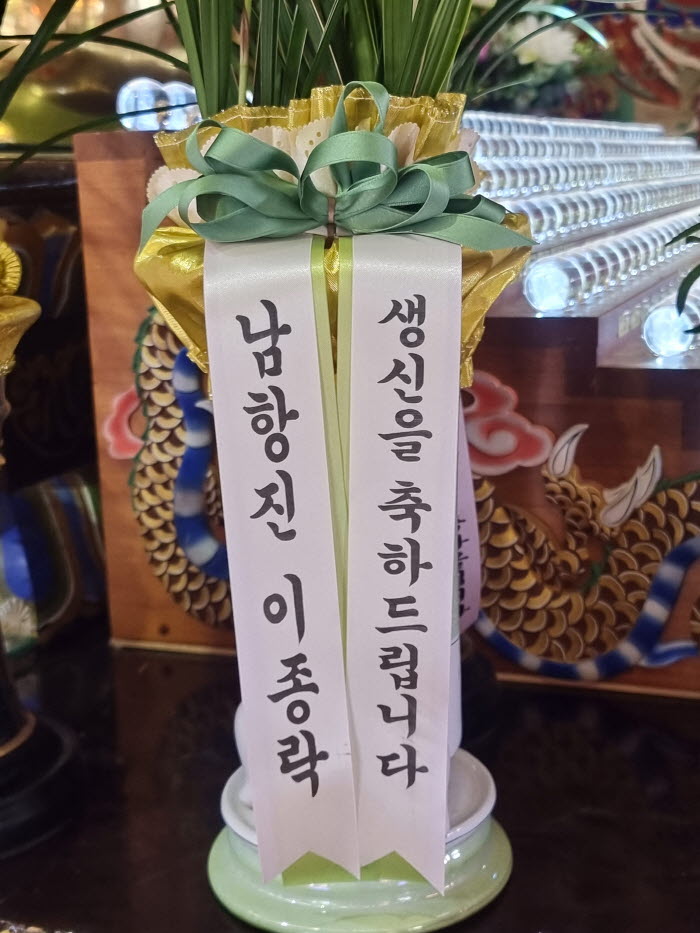 생신을 축하드립니다
남항진 이종락